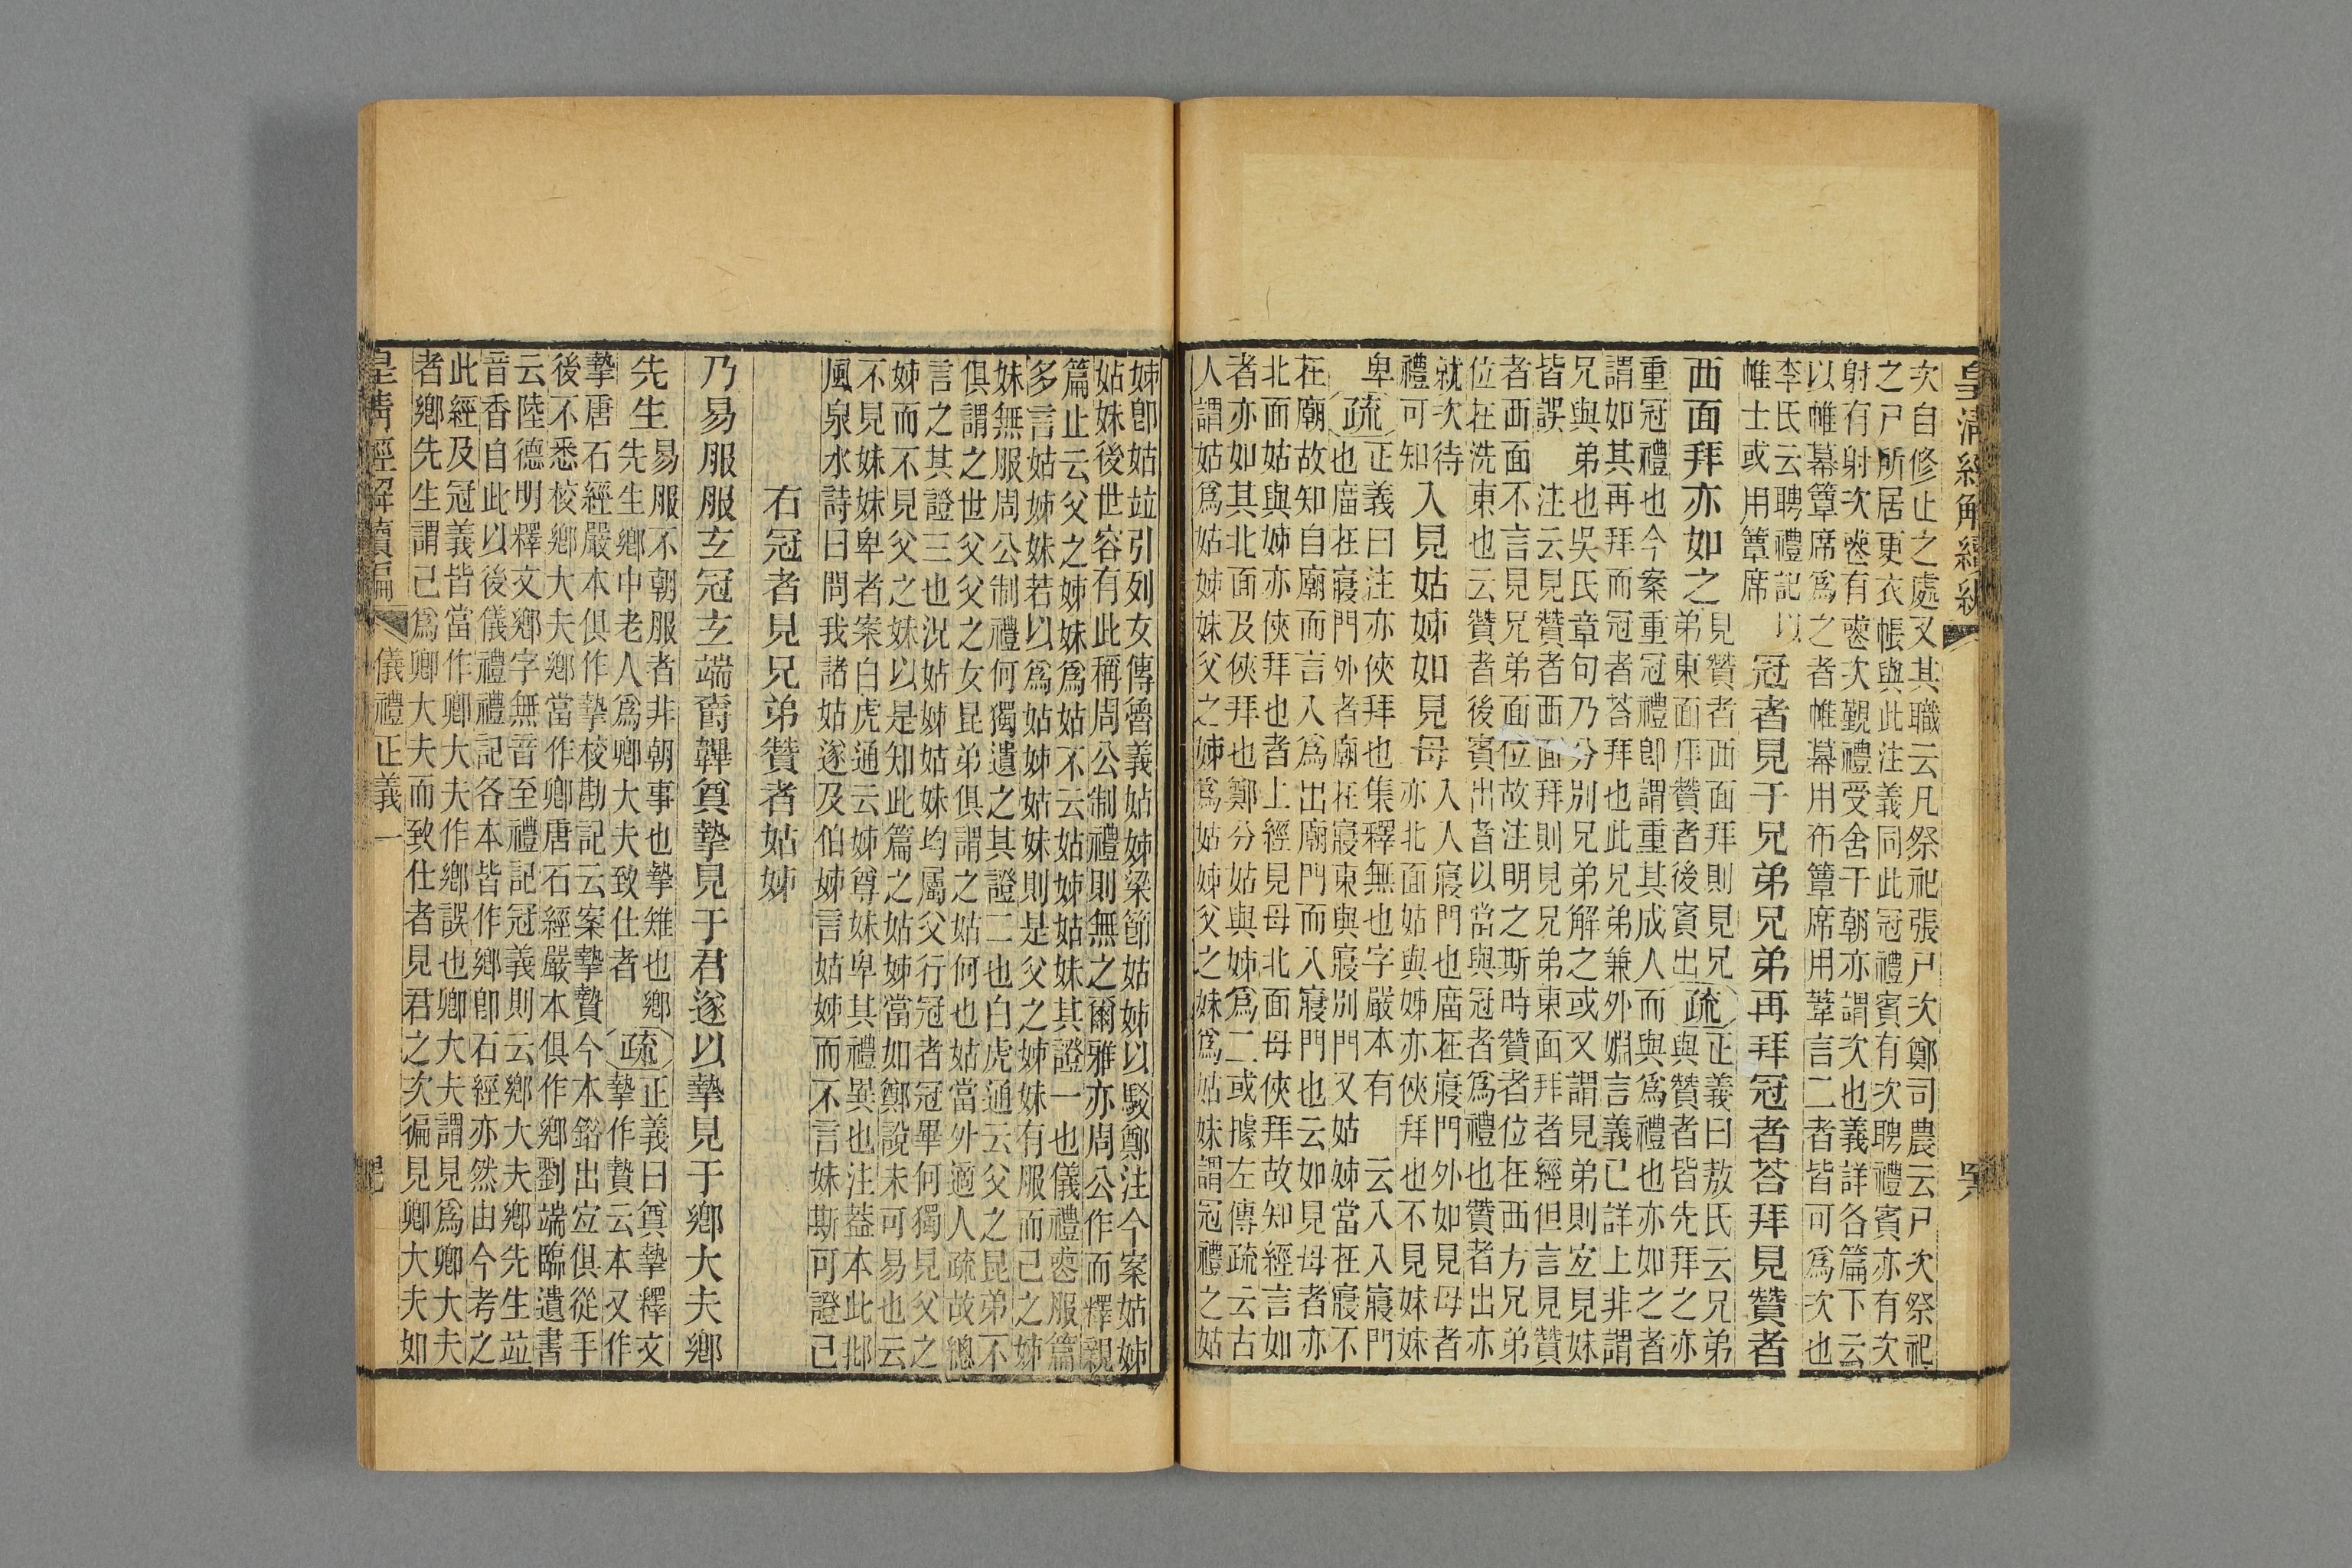 皇淸經解續編
次自修止之處又其職云凡祭祀張尸次鄭司農云尸次祭祀
之尸所居更衣帳與此注義同此冠禮賓有次聘禮賓亦有次
射有射次喪有喪次覲禮受舍于朝亦謂次也義詳各篇下云
以帷幕簟席爲之者帷幕用布簟席用葦言二者皆可爲次也
李氏云聘禮記以
帷士或用簟席
冠者見于兄弟兄弟再拜冠者荅拜見贊者
西面拜亦如之
見贊者西面拜則見兄
弟東面拜贊者後賓出
疏
正義曰敖氏云兄弟
與贊者皆先拜之亦
重冠禮也今案重冠禮卽謂重其成人而與爲禮也亦如之者
謂如其再拜而冠者荅拜也此兄弟兼外姻言義已詳上非謂
兄與弟也吳氏章句乃分別兄弟解之或又謂見弟則宐見妹
皆誤 注云見贊者西面拜則見兄弟東面拜者經但言見贊
者西面不言見兄弟面位故注明之斯時贊者位在西方兄弟
位在洗東也云贊者後賓出者以當與冠者爲禮也贊者出亦
就次待
禮可知
入見姑姊如見母
入人寢門也廟在寢門外如見母者
亦北面姑與姊亦俠拜也不見妹妹
卑
疏
正義曰注亦俠拜也集釋無也字嚴本有 云入入寢門
也廟在寢門外者廟在寢東與寢別門又姑姊當在寢不
在廟故知自廟而言入爲出廟門而入寢門也云如見母者亦
北面姑與姊亦俠拜也者上經見母北面母俠拜故知經言如
者亦如其北面及俠拜也鄭分姑與姊爲二或據左傳疏云古
人謂姑爲姑姊妹父之姊爲姑姊父之妹爲姑妹謂冠禮之姑
姊卽姑竝引列女傳魯義姑姊梁節姑姊以駁鄭注今案姑姊
姑妹後世容有此稱周公制禮則無之爾雅亦周公作而釋親
篇止云父之姊妹爲姑不云姑姊姑妹其證一也儀禮喪服篇
多言姑姊妹若以爲姑姊姑妹則是父之姊妹有服而己之姊
妹無服周公制禮何獨遺之其證二也白虎通云父之昆弟不
俱謂之世父父之女昆弟俱謂之姑何也姑當外適人疏故總
言之其證三也況姑姊姑妹均屬父行冠者冠畢何獨見父之
姊而不見父之妹以是知此篇之姑姊當如鄭說未可易也云
不見妹妹卑者案白虎通云姊尊妹卑其禮異也注蓋本此邶
風泉水詩曰問我諸姑遂及伯姊言姑姊而不言妹斯可證已
右冠者見兄弟贊者姑姊
乃易服服玄冠玄端爵韠奠摯見于君遂以摯見于鄕大夫鄕
先生
易服不朝服者非朝事也摯雉也鄕
先生鄕中老人爲卿大夫致仕者
疏
正義曰奠摯釋文
摯作贄云本又作
摯唐石經嚴本俱作摯校勘記云案摯贄今本錯出宐俱從手
後不悉校鄕大夫鄕當作卿唐石經嚴本俱作鄕劉端臨遺書
云陸德明釋文鄕字無音至禮記冠義則云鄕大夫鄕先生竝
音香自此以後儀禮禮記各本皆作鄕卽石經亦然由今考之
此經及冠義皆當作卿大夫作鄕誤也卿大夫謂見爲卿大夫
者鄕先生謂已爲卿大夫而致仕者見君之次徧見卿大夫如
皇淸經解續編 儀禮正義一